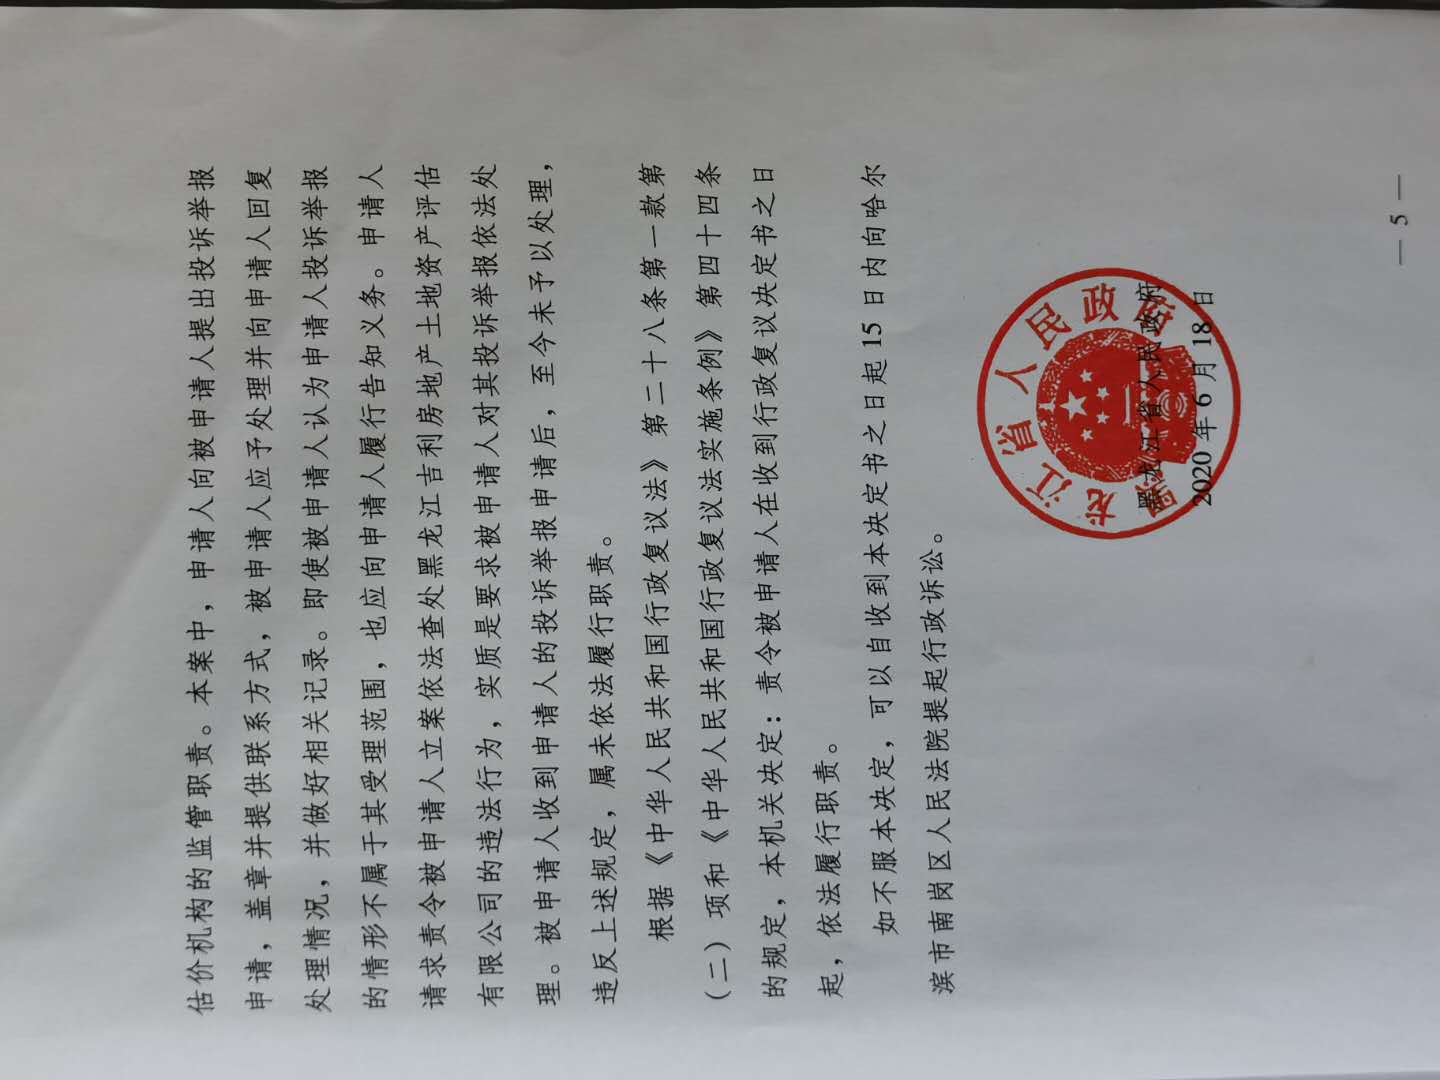 估价机构的监管职责。本案中，申请人向被申请人提出投诉举报
申请，盖章并提供联系方式，被申请人应予处理并向申请人回复
处理情况，并做好相关记录。即使被申请人认为申请人投诉举报
的情形不属于其受理范围，也应向申请人履行告知义务。申请人
请求责令被申请人立案依法查处黑龙江吉利房地产土地资产评估
有限公司的违法行为，实质是要求被申请人对其投诉举报依法处
理。被申请人收到申请人的投诉举报申请后，至今未予以处理，
违反上述规定，属未依法履行职责。
根据《中华人民共和国行政复议法》第二十八条第一款第
（二）项和《中华人民共和国行政复议法实施条例》第四十四条
的规定，本机关决定：责令被申请人在收到行政复议决定书之日
起，依法履行职责。
如不服本决定，可以自收到本决定书之日起 15 日内向哈尔
滨市南岗区人民法院提起行政诉讼。
黑龙江省人民政府
黑龙江省人民政府
2020 年 6 月 18 日
— 5 —